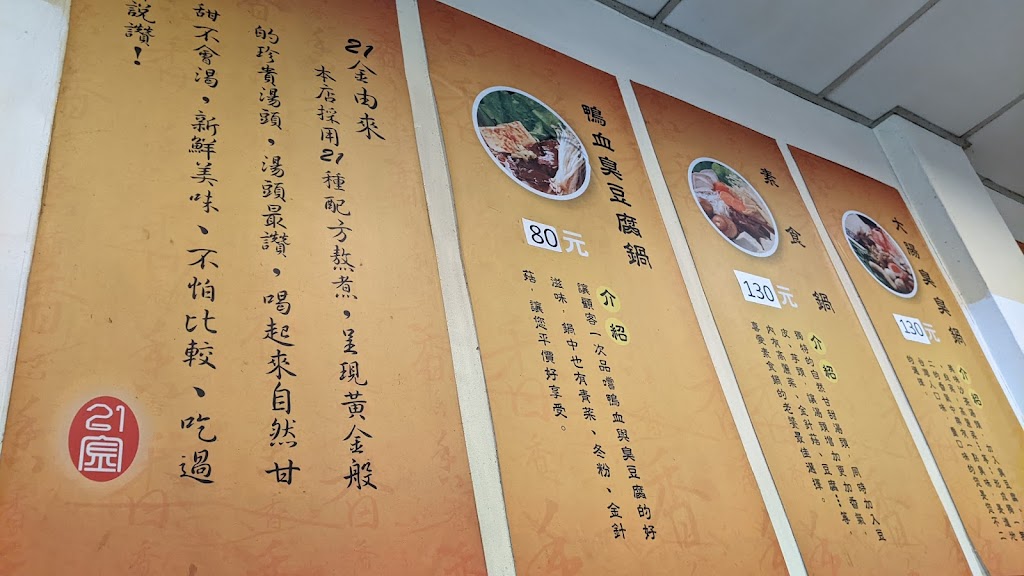 21金由來
本店採用21種配方熬煮，呈現黃金般
的珍貴湯頭，湯頭最讚，喝起來自然甘
甜不會渴，新鮮美味、不怕比較、吃過
說讚！
鴨血臭豆腐鍋
80元
介紹
讓顧客一次品嚐鴨血與臭豆腐的好
滋味，鍋中也有青菜、冬粉、金針
菇，讓您平價好享受。
素食鍋
130元
介紹
獨特的自然甘甜湯頭，同時加入豆
皮、芋頭、金針菇、豆腐
內有高麗菜，讓湯頭增加更加香
喜愛素食鍋的老饕最佳選擇。
大腸臭臭鍋
130元
介紹